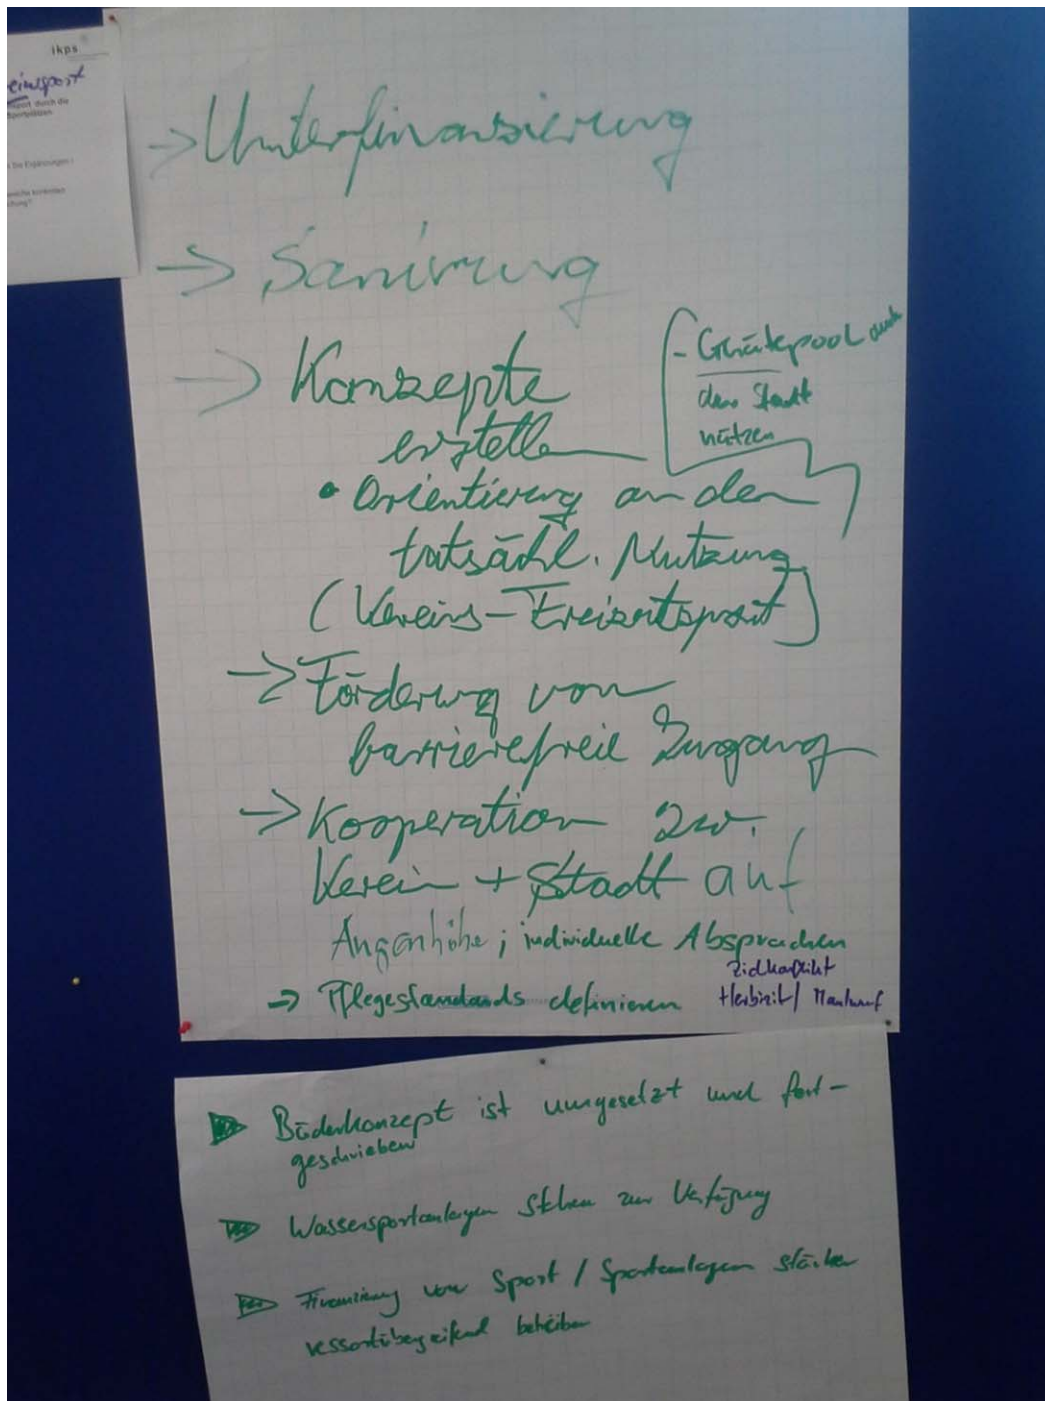 ikps
einsport
nsport durch die
Sportstätten
→ Unterfinanzierung
→ Sanierung
→ Konzepte
erstellen
- Gerätepool auch
der Stadt
nützen
• Orientierung an der
tatsächl. Nutzung
(Vereins-Freizeitsport)
→ Förderung von
barrierefreie Zugang
→ Kooperation zw.
Verein + Stadt auf
Augenhöhe; individuelle Absprachen
→ Pflegestandards definieren
Zielkonflikt
Herbizit / Maulwurf
Bäderkonzept ist umgesetzt und fort-
geschrieben
Wassersportanlagen stehen zur Verfügung
Finanzierung von Sport / Sportanlagen stärker
ressortübergreifend betreiben